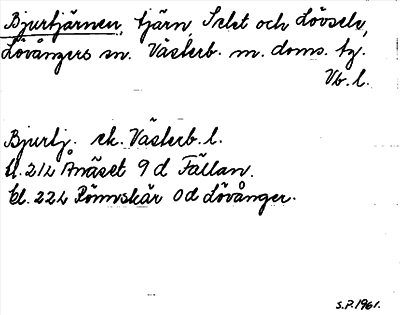 Bjurtjärnen, tjärn, Selet och Lövsele,
Lövångers sn. Västerb. m. doms. tg.
Vb. l.
Bjurtj. ek. Västerb. l.
Bl. 21L Ånäset 9 d Fällan.
Bl. 22L Rönnskär 0 d Lövånger.
S.P. 1961.